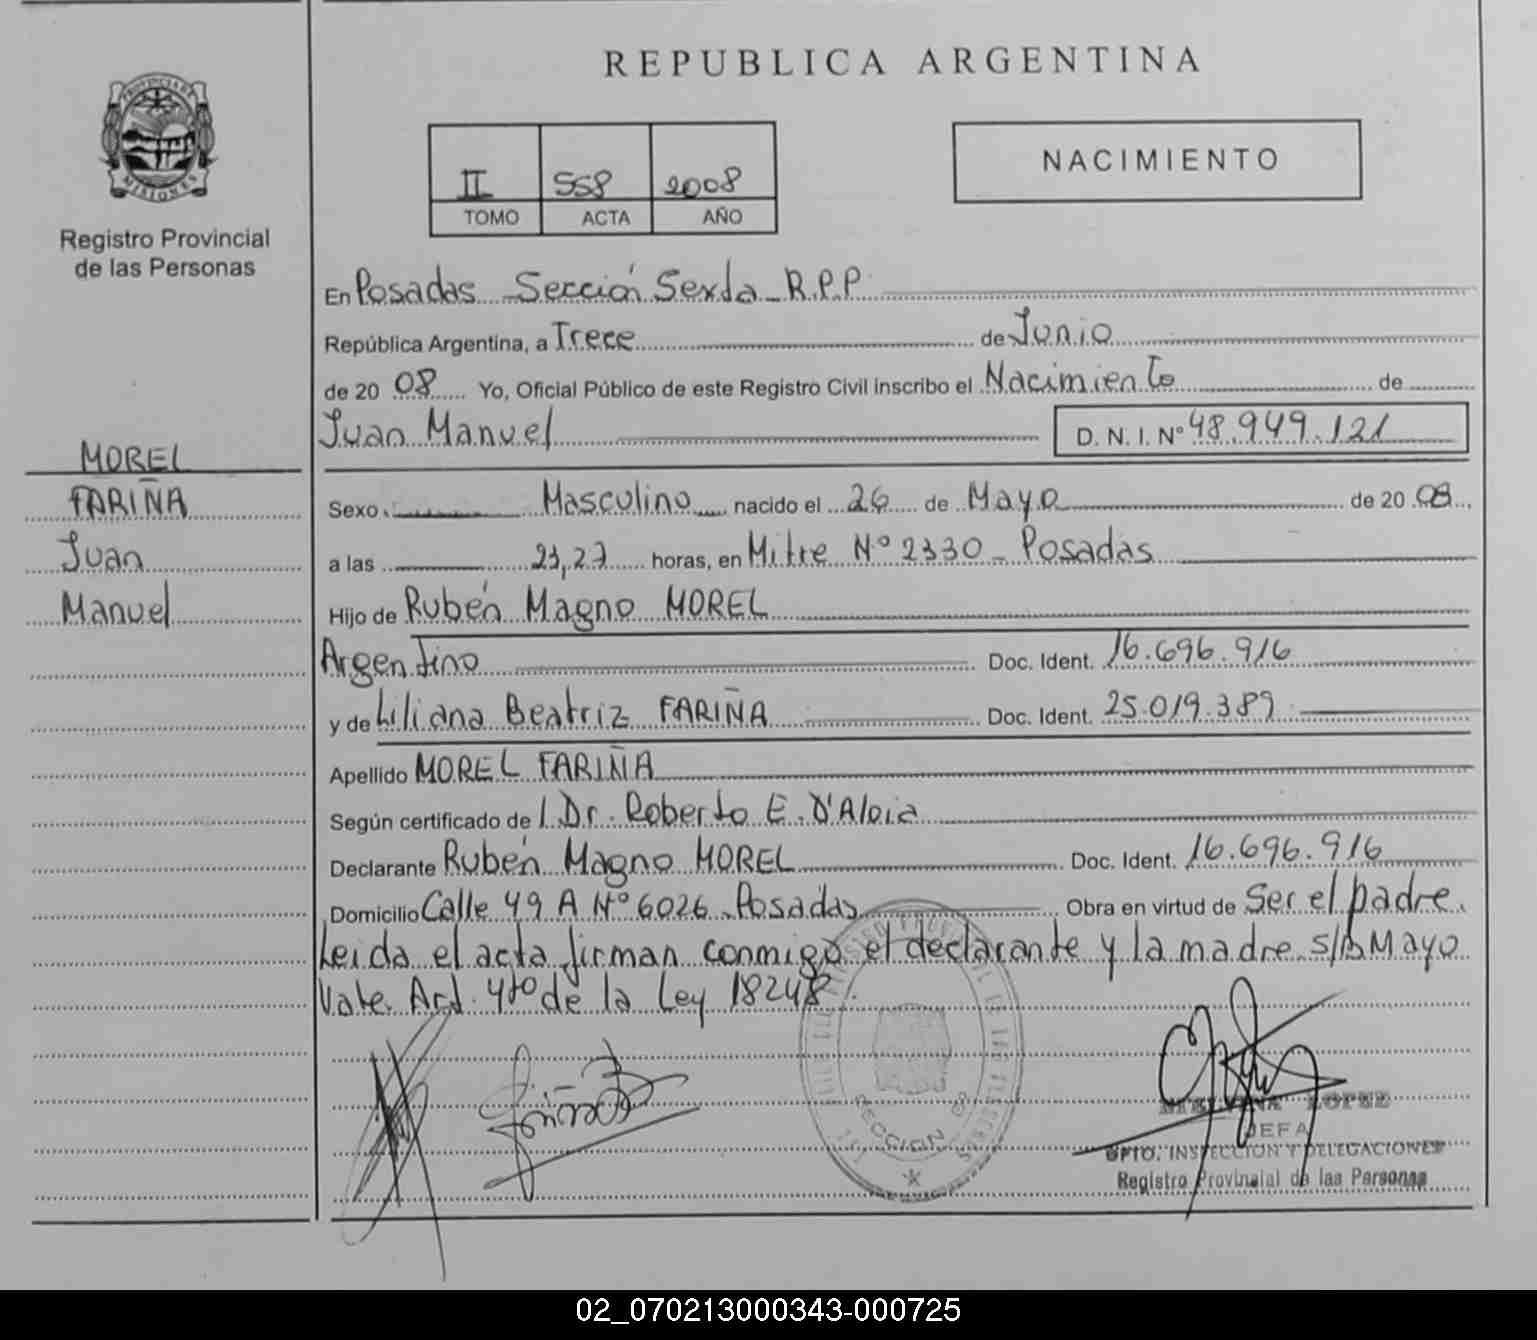 PROVINCIA DE
MISIONES
Registro Provincial
de las Personas
MOREL
FARIÑA
Juan
Manuel
REPUBLICA ARGENTINA
II 558 2008
TOMO ACTA AÑO
NACIMIENTO
En Posadas Sección Sexta R.P.P.
República Argentina, a Trece de Junio
de 20 08 Yo, Oficial Público de este Registro Civil inscribo el Nacimiento de
Juan Manuel D. N. I. Nº 48.949.121
Sexo Masculino nacido el 26 de Mayo de 20 08
a las 23,27 horas, en Mitre Nº 2330 - Posadas
Hijo de Rubén Magno MOREL
Argentino Doc. Ident. 16.696.916
y de Liliana Beatriz FARIÑA Doc. Ident. 25.019.389
Apellido MOREL FARIÑA
Según certificado de Dr. Roberto E. D'Aloia
Declarante Rubén Magno MOREL Doc. Ident. 16.696.916
Domicilio Calle 49 A Nº 6026 Posadas Obra en virtud de Ser el padre.
Leida el acta firman conmigo el declarante y la madre. S/B Mayo
Vale. Art. 4to de la Ley 18248.
SECCION
LOPEZ
JEFA
DPTO. INSPECCION Y DELEGACIONES
Registro Provincial de las Personas
02_070213000343-000725